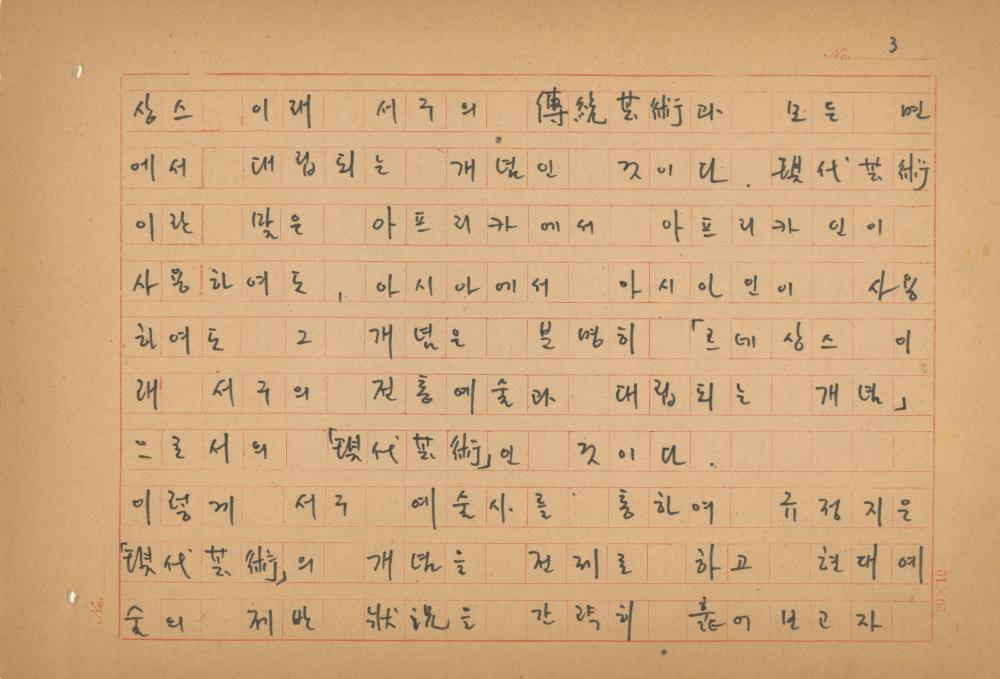 No. 3
상스 이래 서구의 傳統芸術과 모든 면
에서 대립되는 개념인 것이다. 現代芸術
이란 말은 아프리카에서 아프리카인이
사용하여도, 아시아에서 아시아인이 사용
하여도 그 개념은 분명히 「르네상스 이
래 서구의 전통예술과 대립되는 개념」
으로서의 「現代芸術」인 것이다.
이렇게 서구 예술사를 통하여 규정지은
「現代芸術」의 개념을 전제로 하고 현대예
술의 제반 狀況을 간략히 훑어보고자
No.
20×10